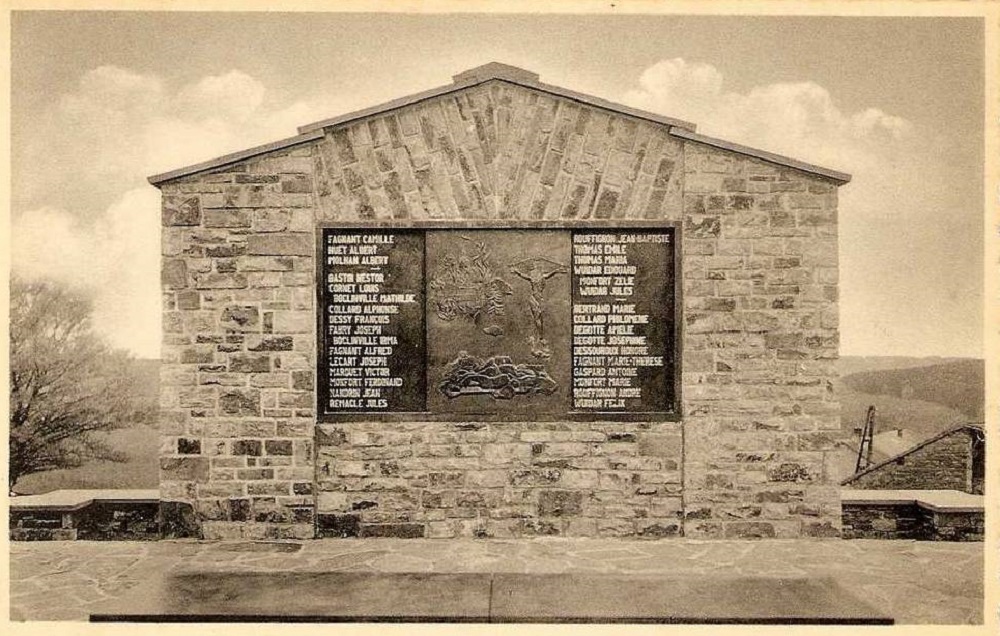 FAGNANT CAMILLE
HUET ALBERT
MOLHAN ALBERT
BASTIN NESTOR
CORNET LOUIS
BOCLINVILLE MATHILDE
COLLARD ALPHONSE
DESSY FRANÇOIS
FABRY JOSEPH
BOCLINVILLE IRMA
FAGNANT ALFRED
LECART JOSEPH
MARQUET VICTOR
MONFORT FERDINAND
NANDRIN JEAN
REMACLE JULES
ROUFFIGNON JEAN-BAPTISTE
THOMAS EMILE
THOMAS MARIA
WUIDAR EDOUARD
MONFORT ZELIE
WUIDAR JULES
BERTRAND MARIE
COLLARD PHILOMENE
DEGOTTE AMELIE
DEGOTTE JOSEPHINE
DESSOUROUX HONORE
FAGNANT MARIE-THERESE
GASPARD ANTOINE
MONFORT MARIE
ROUFFIGNON ANDRE
WUIDAR FELIX